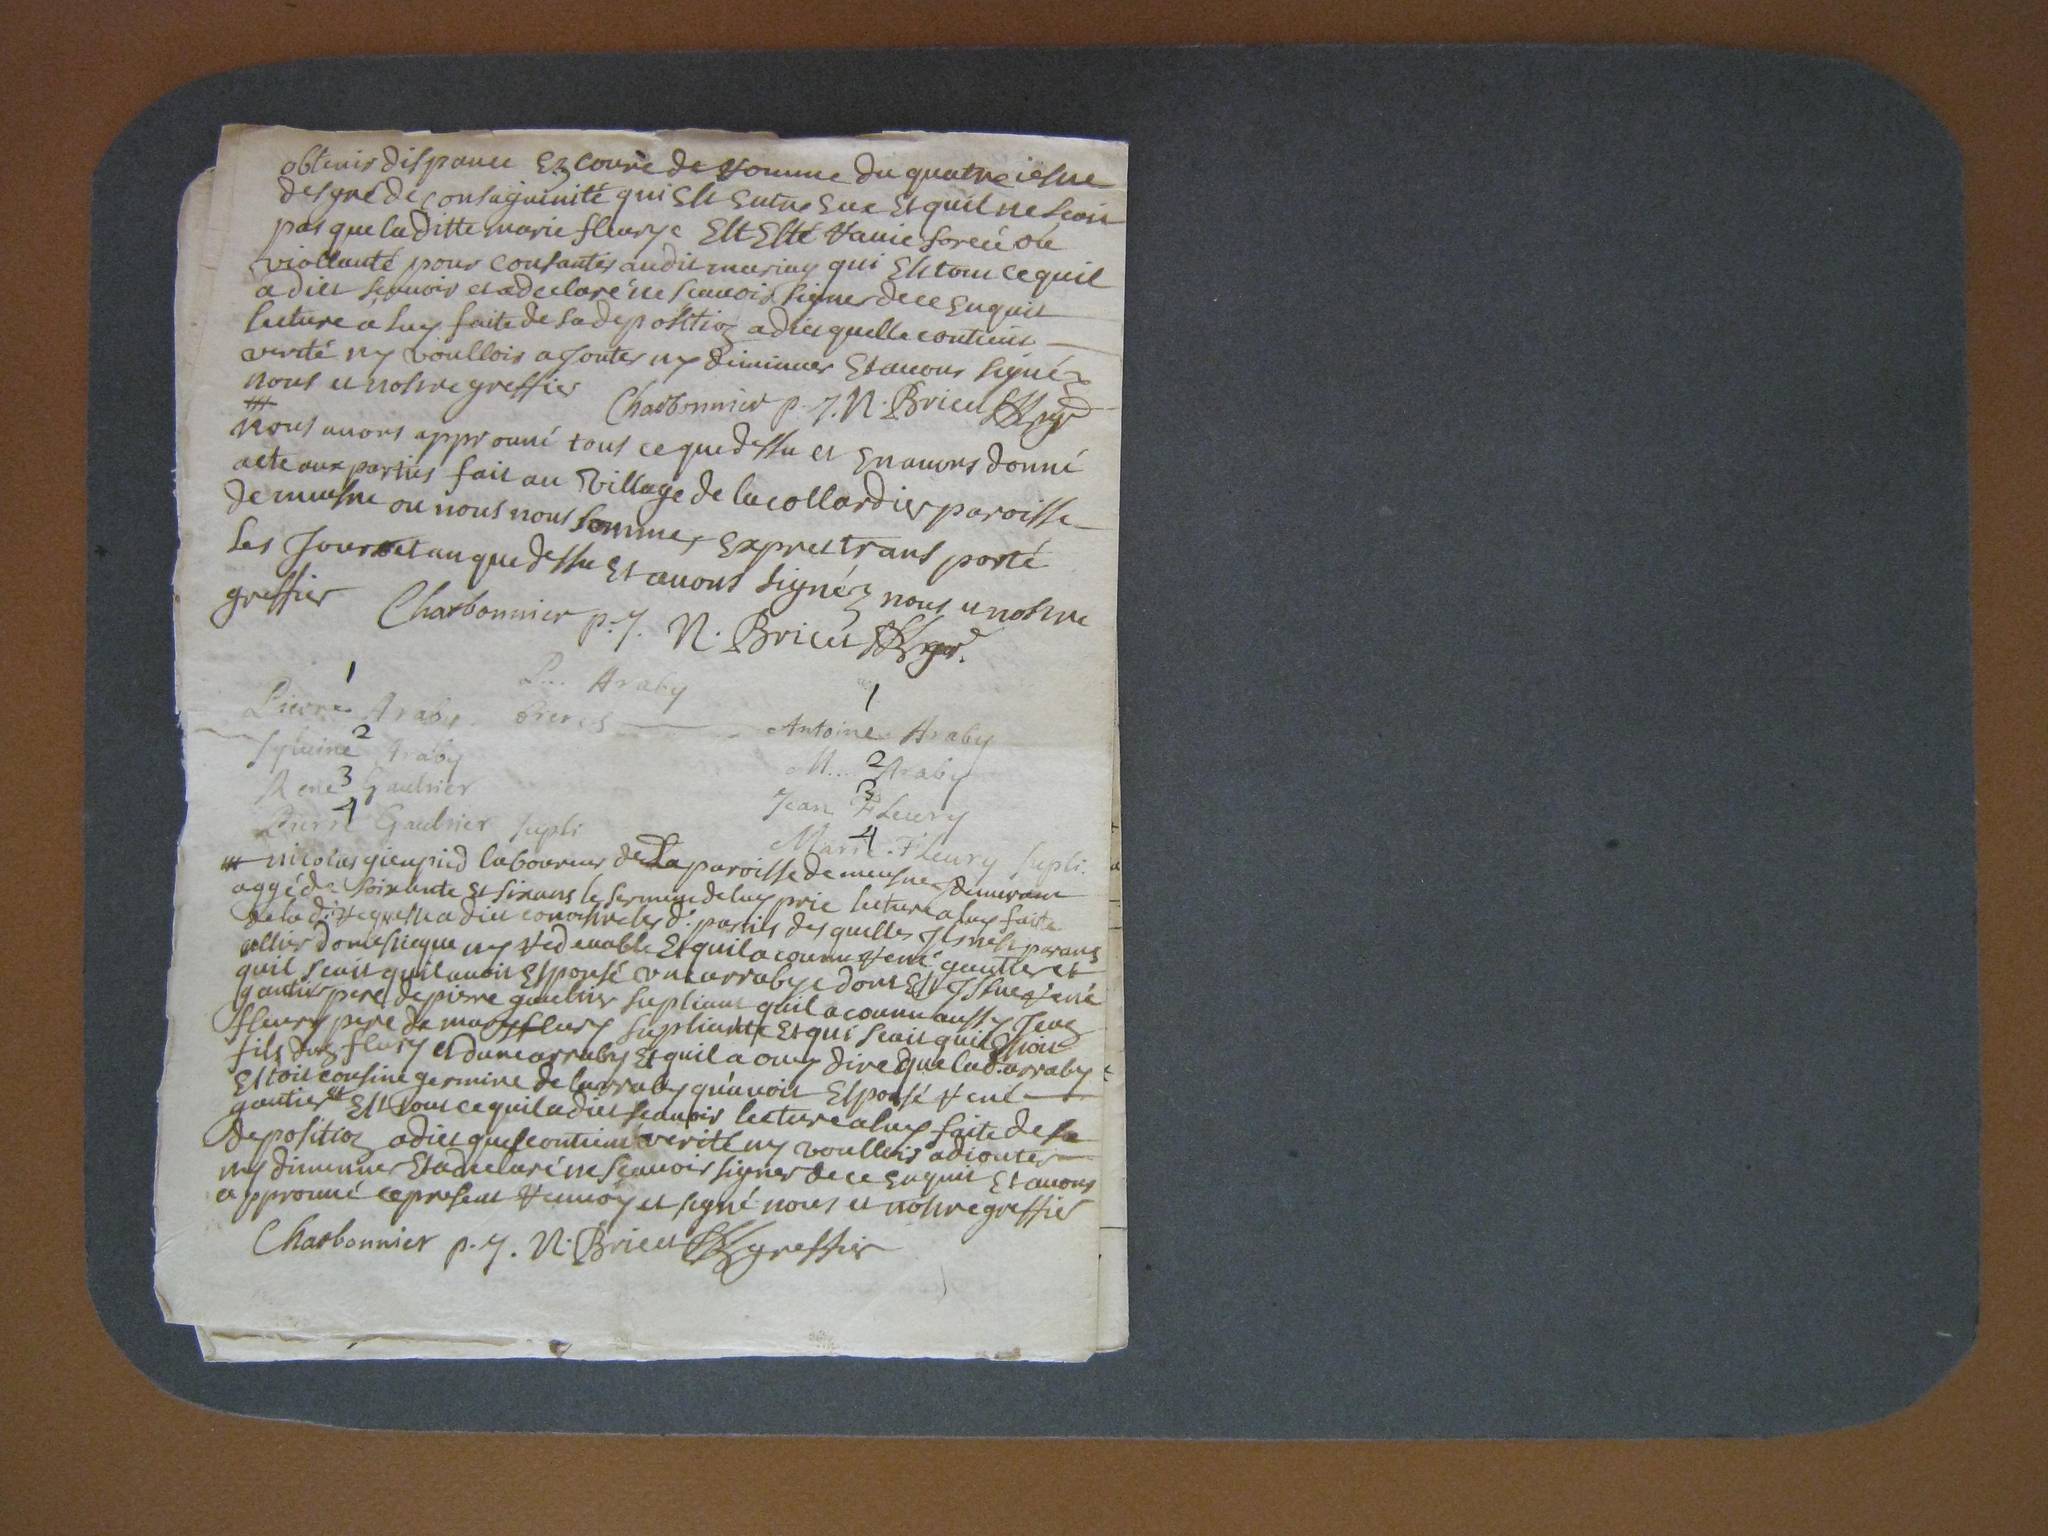 obtenir dispance En courre de Romme du quatreiesme
desgré de consaguinité qui Est Entre Eux Et quil ne scait
pas que laditte marie fleurye Est Esté Ravie forcée ou
viollanté pour consantir audit mariag qui Est tout ce quil
a dict scavoir et a declaré ne scavoir signer de ce Enquit
lecture a luy faite de sa deposition a dict quelle contient
verité ny voullois ajouter ny diminuer Et avons signéz
nous et nostre greffier Charbonnier p. J. N. Bricet gr
Nous avons approuvé tous ce que dessu et En avons donné
acte aux parties fait au village de la collardier paroisse
de meusne ou nous nous sommes Exprest transporté
les Jour et an que dessu Et avons signéz nous et nostre
greffier Charbonnier p. J. N. Bricet gr.
P... Araby
1 1
Pierre Araby freres Antoine Araby
2 2
Sylvine Araby M... Araby
3 3
René Gaultier Jean Fleury
4 4
Pierre Gaultier supli Marie Fleury supli.
nicolas gienpied laboureur de La paroisse de meusne y demurant
aggé de soixante Et six ans le serment de luy prie lecture a luy faite
de la ditte queste a dict conoistre les d. partils desquelles Il nest parans
allier domesticque ny Redevable Et quil a counu René gautier et
quil scait quil avoit Espousé une arrabye dont Est Issue René
gautier pere de pierre gaultier supliant quil a counu aussy Jean
fleury pere de mary fleury supliante Et qui scait quil Estoit
fils dun fleury et dune arraby Et quil a ouy dire que lad. arraby
Estoit cousine germine de larraby quavoit Espousé René
gautier et Est tout ce quil a dict scavoir lecture a luy faite de sa
deposition a dict quel contient verité ny voullois adiouter
ny diminuer Et a declaré ne scavoir signer de ce Enquit Et avons
approuvé ce present Renvoy et signé nous et nostre greffier
Charbonnier p. J. N. Bricet greffier